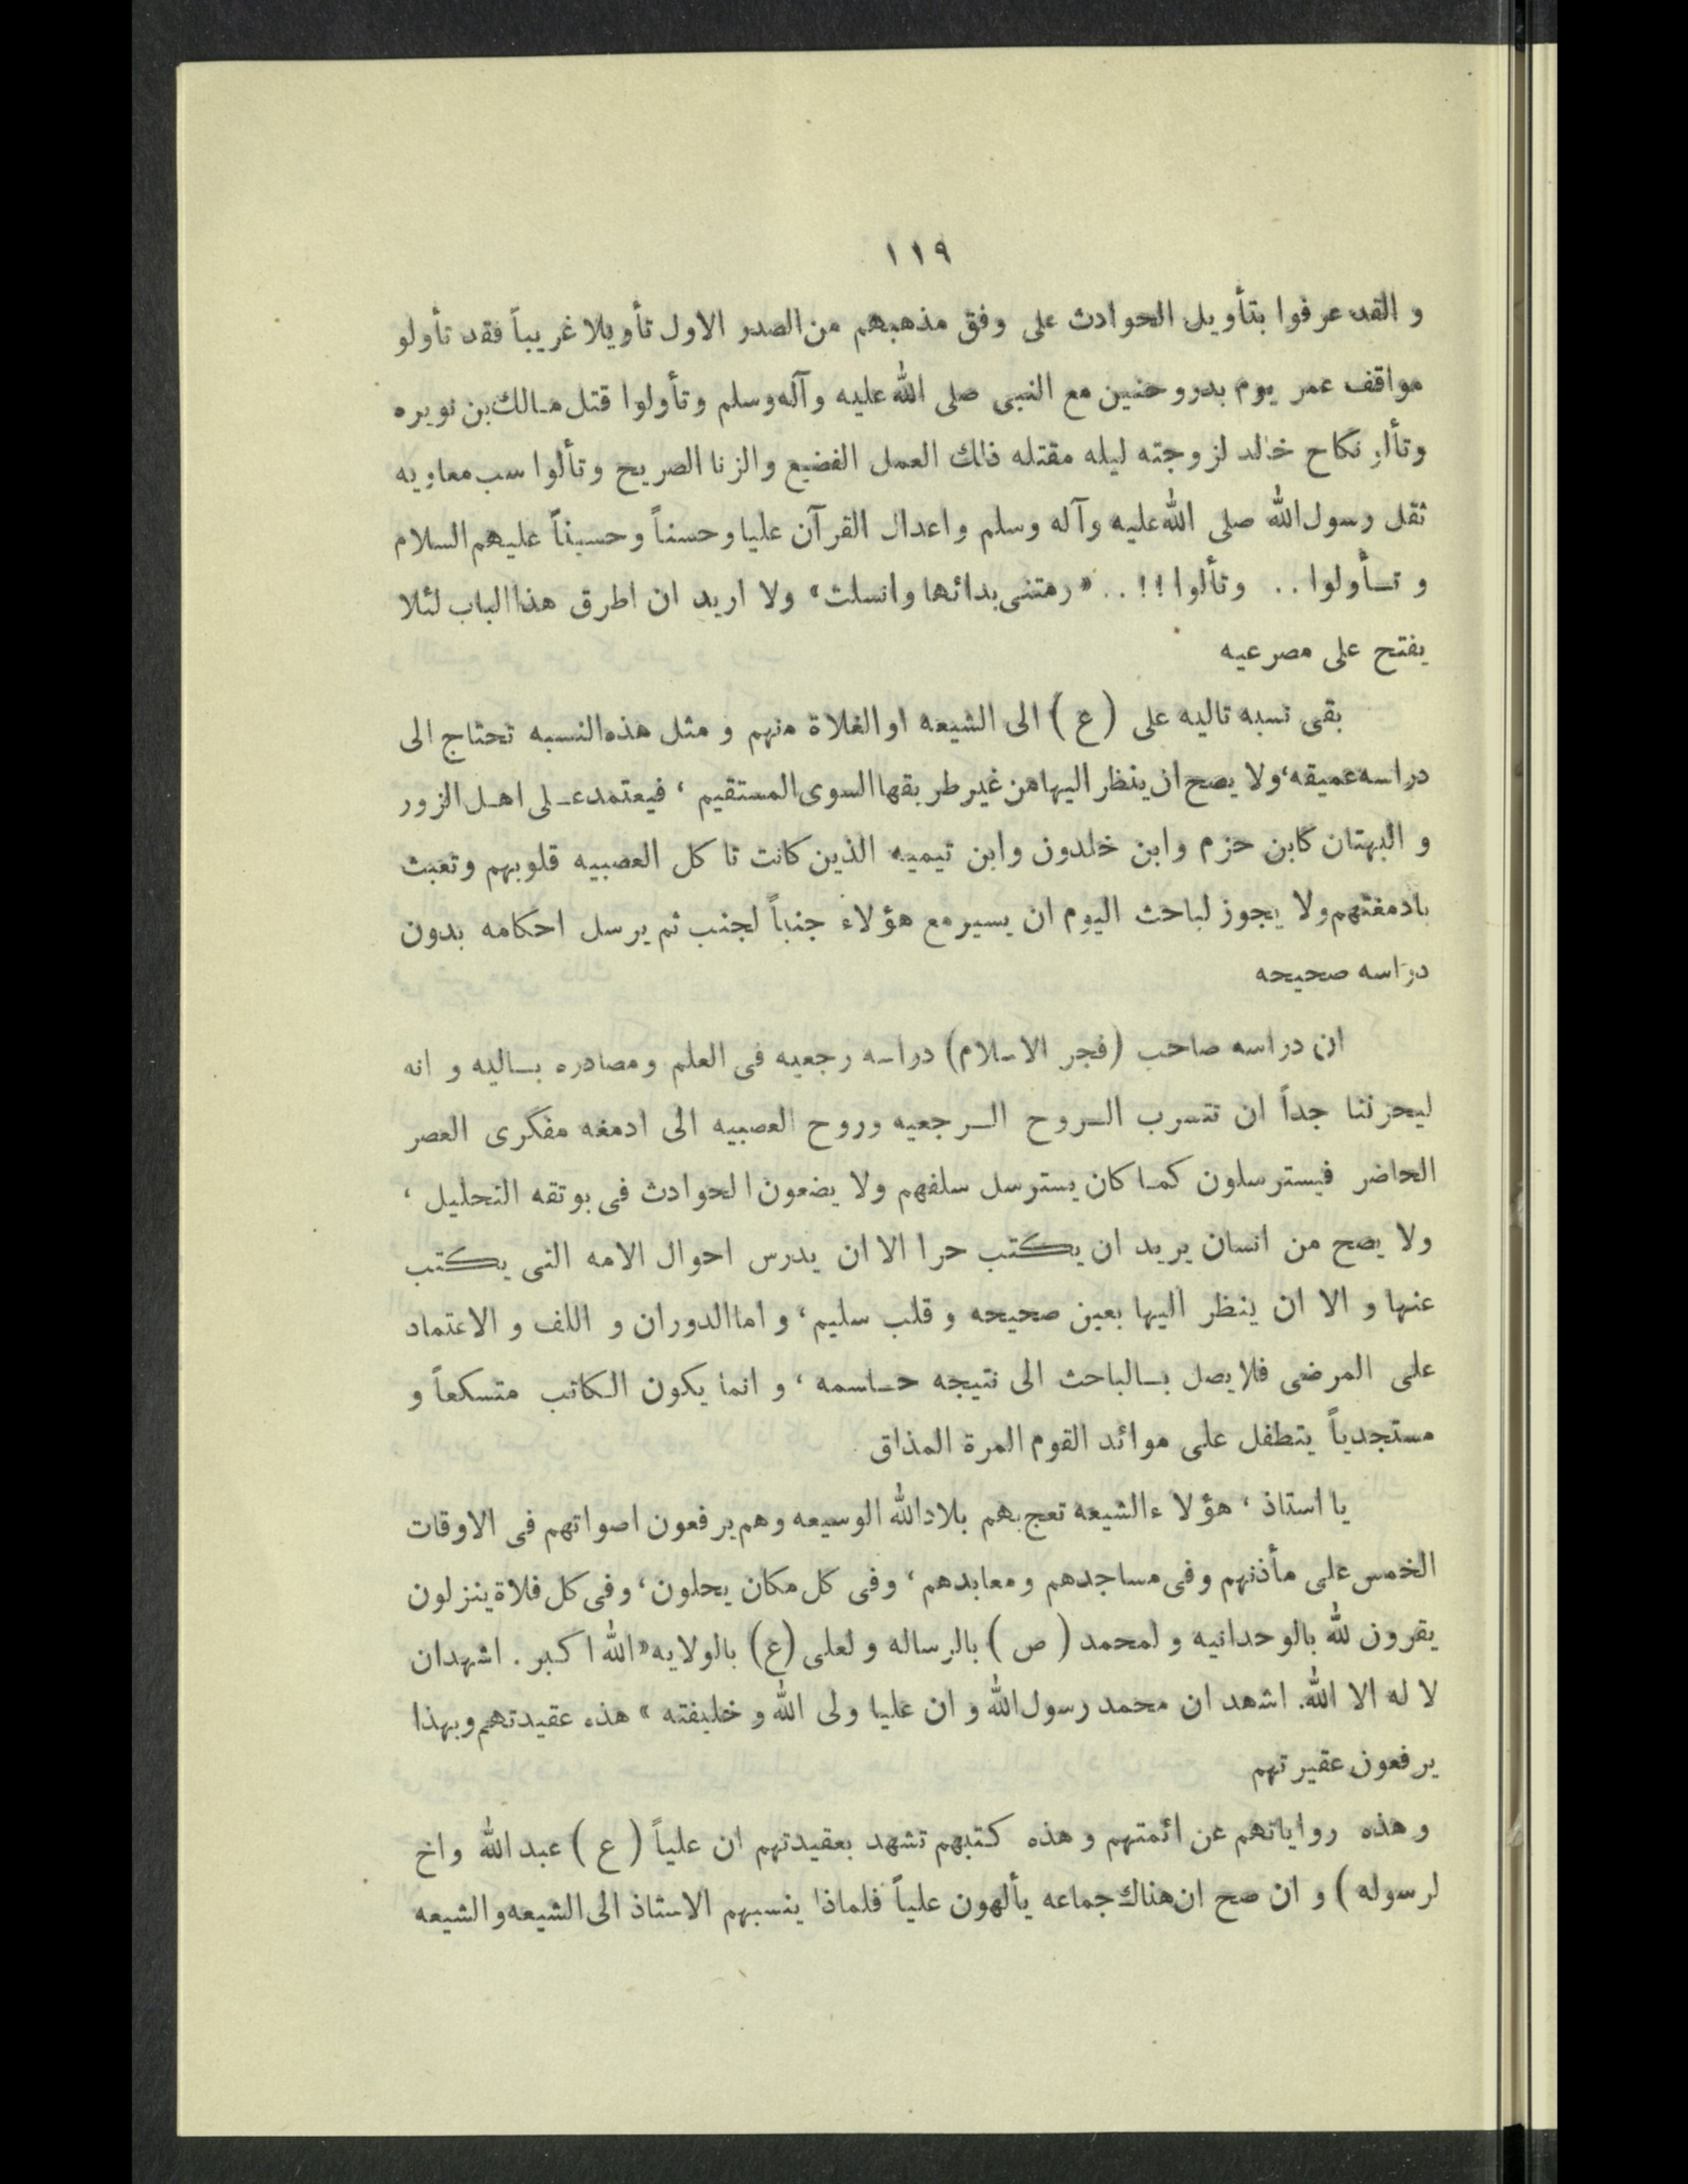 ١١٩
و القد عرفوا بتأويل الحوادث على وفق مذهبهم من الصدر الاول تأويلا غريباً فقد تأولو
مواقف عمر يوم بدر وحنين مع النبى صلى الله عليه وآله وسلم وتأولوا قتل مـالك بن نويره
وتألو نكاح خالد لزوجته ليله مقتله ذلك العمل الفضيع والزنا الصريح وتألوا سب معاويه
ثقل رسول الله صلى الله عليه وآله وسلم واعدال القرآن عليا وحسناً وحسيناً عليهم السلام
و تـأولوا .. وتألوا !! .. «رمتنى بدائها وانسلت» ولا اريد ان اطرق هذا الباب لئلا
يفتح على مصرعيه
بقى نسبه تاليه على (ع) الى الشيعه او الغلاة منهم و مثل هذه النسبه تحتاج الى
دراسه عميقه، ولا يصح ان ينظر اليها من غير طريقها السوى المستقيم ، فيعتمد عـلى اهـل الزور
و البهتان كابن حزم وابن خلدون وابن تيميه الذين كانت تا كل العصبيه قلوبهم وتعبث
بادمغتهم ولا يجوز لباحث اليوم ان يسير مع هؤلاء جنباً لجنب ثم يرسل احكامه بدون
دراسه صحيحه
ان دراسه صاحب (فجر الاسلام) دراسه رجعيه فى العلم ومصادره بـاليه و انه
ليحزننا جداً ان تتسرب الـروح الـرجعيه وروح العصبيه الى ادمغه مفكرى العصر
الحاضر فيسترسلون كمـا كان يسترسل سلفهم ولا يضعون الحوادث فى بوتقه التحليل ،
ولا يصح من انسان يريد ان يكتب حرا الا ان يدرس احوال الامه التى يكتب
عنها و الا ان ينظر اليها بعين صحيحه و قلب سليم ، و اما الدوران و اللف و الاعتماد
على المرضى فلا يصل بـالباحث الى نتيجه حـاسمه ، و انما يكون الكاتب متسكعاً و
مستجدياً يتطفل على موائد القوم المرة المذاق
يا استاذ ، هؤلا ء الشيعه تعج بهم بلاد الله الوسيعه وهم يرفعون اصواتهم فى الاوقات
الخمس على مأذنهم وفى مساجدهم ومعابدهم ، وفى كل مكان يحلون ، وفى كل فلاة ينزلون
يقرون لله بالوحدانيه و لمحمد (ص) بالرساله و لعلى (ع) بالولايه «الله اكبر . اشهد ان
لا له الا الله. اشهد ان محمد رسول الله و ان عليا ولى الله و خليفته » هذه عقيدتهم وبهذا
يرفعون عقيرتهم
و هذه رواياتهم عن ائمتهم و هذه كتبهم تشهد بعقيدتهم ان علياً (ع) عبد الله واخ
لرسوله) و ان صح ان هناك جماعه يألهون علياً فلماذا ينسبهم الاستاذ الى الشيعه و الشيعه